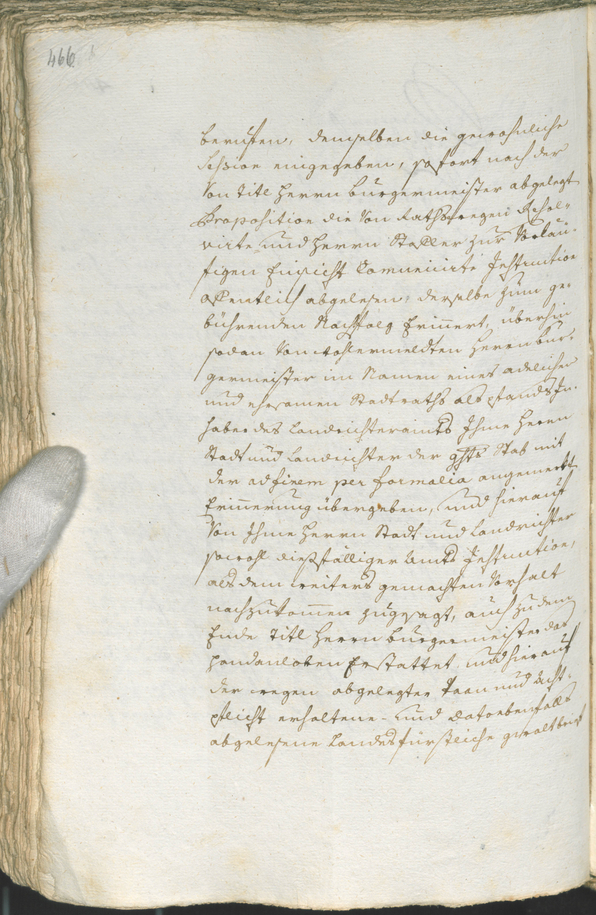 466
berufen, demselben die gewohnliche
Session eingegeben, sofort nach der
Von titl Herrn burgermeister abgelegt
Proposition die Von Rathswegen Resol-
virte und Herrn Staller zur Vorläu-
figen Einsicht Comunicirte Instruction
offentlich abgelesen, derselbe zum ge-
bührenden Nachfolg Erinert, überhin
sodan Von wohlermeldten Herrn bur-
germeister im Namen eines adelichen
und ehrsamen Stadtraths als Pfands In-
haber des Landrichteramts Ihme Herrn
Stadt und Landrichter der Stab mit
der ad finem per formalia angemerkt
Erinnerung übergeben, und hierauf
Von Ihme Herrn Stadt und Landrichter
sowohl diesfälliger Amts Instruction,
als dem weiters gemachten Vorhalt
nachzukommen zugesagt, auch zu dem
Ende titl Herrn burgermeister das
handanloben Erstattet und hierauf
der wegen abgelegter Treu und
pflicht erhaltene- und dato ebenfalls
abgelesene Landesfürstliche gwaltbrief